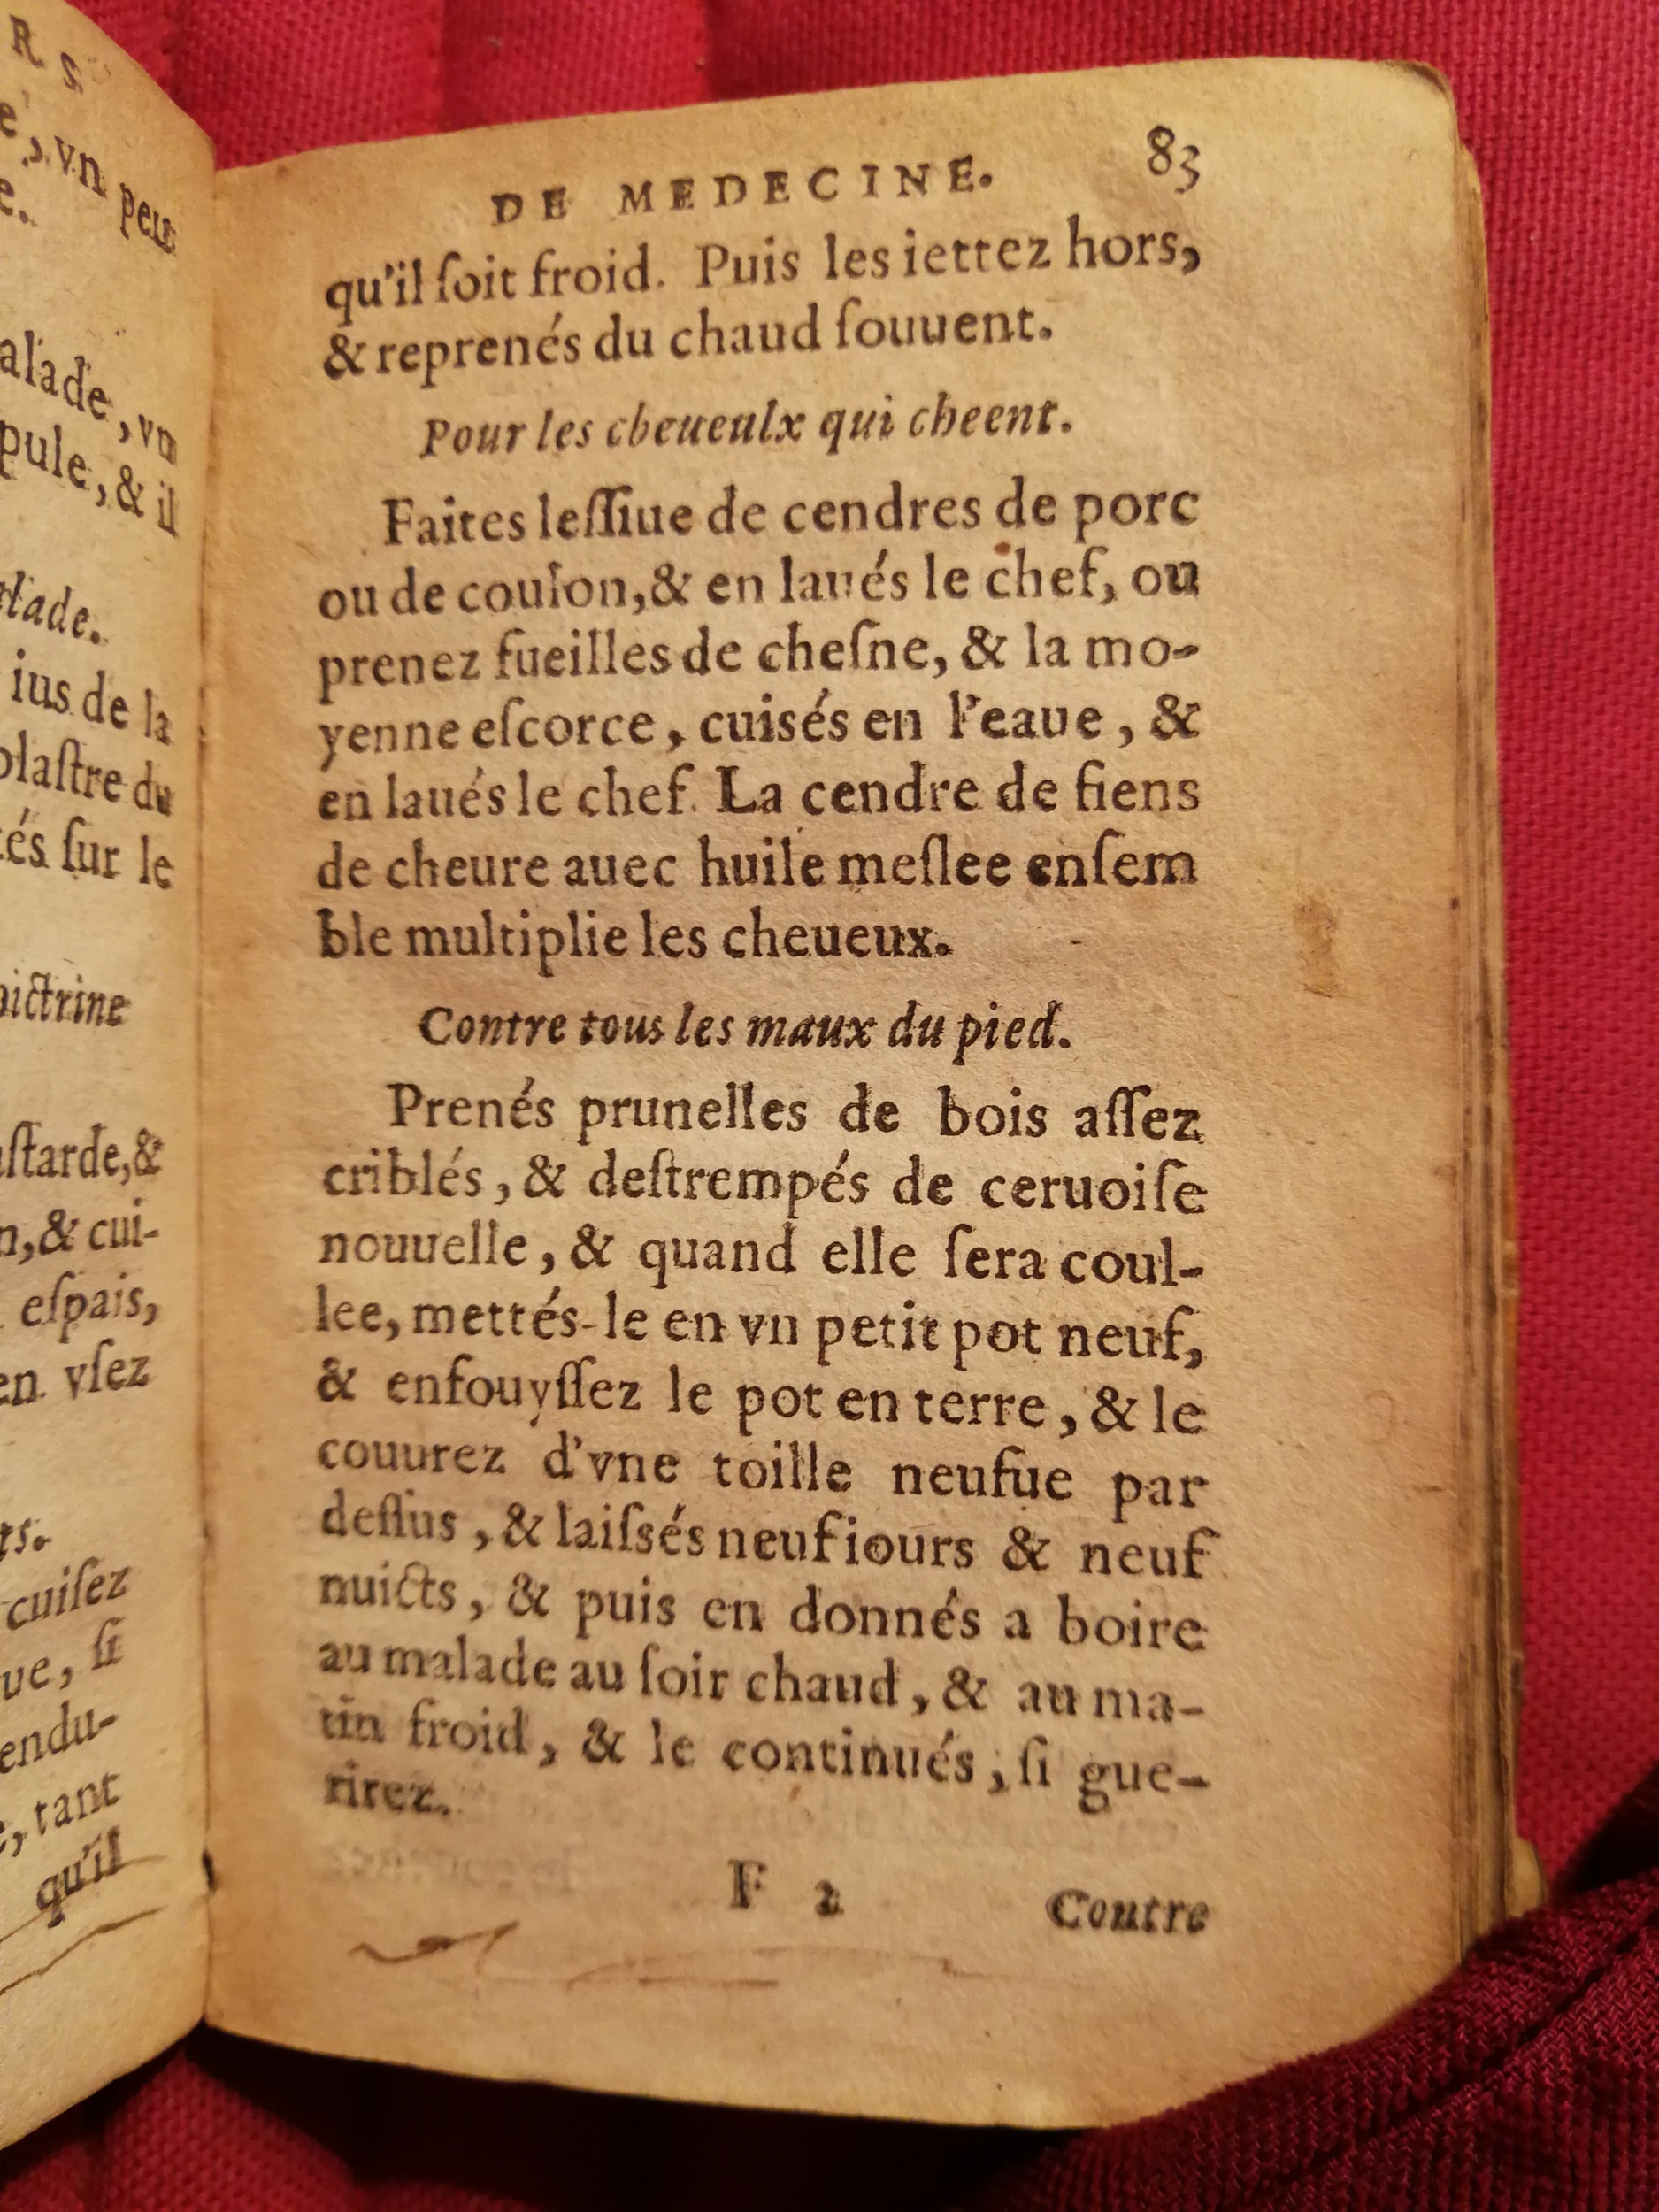 R S
, vn peu
e.
alade, vn
pule, & il
lade.
ius de la
plastre du
tés ſur le
oictrine
ſtarde, &
n, & cui-
eſpais,
en vſez
rs.
cuiſez
ue, ſi
endu-
e, tant
qu'il
DE MEDECINE. 83
qu'il ſoit froid. Puis les iettez hors,
& reprenés du chaud ſouuent.
Pour les cheueulx qui cheent.
Faites leſſiue de cendres de porc
ou de coulon, & en laués le chef, ou
prenez fueilles de cheſne, & la mo-
yenne eſcorce, cuisés en l'eaue, &
en laués le chef. La cendre de fiens
de cheure auec huile meſlee enſem
ble multiplie les cheueux.
Contre tous les maux du pied.
Prenés prunelles de bois aſſez
criblés, & deſtrempés de ceruoiſe
nouuelle, & quand elle ſera coul-
lee, mettés-le en vn petit pot neuf,
& enfouyſſez le pot en terre, & le
couurez d'vne toille neufue par
deſſus, & laiſsés neuf iours & neuf
nuicts, & puis en donnés a boire
au malade au ſoir chaud, & au ma-
tin froid, & le continués, ſi gue-
rirez.
F 2 Contre